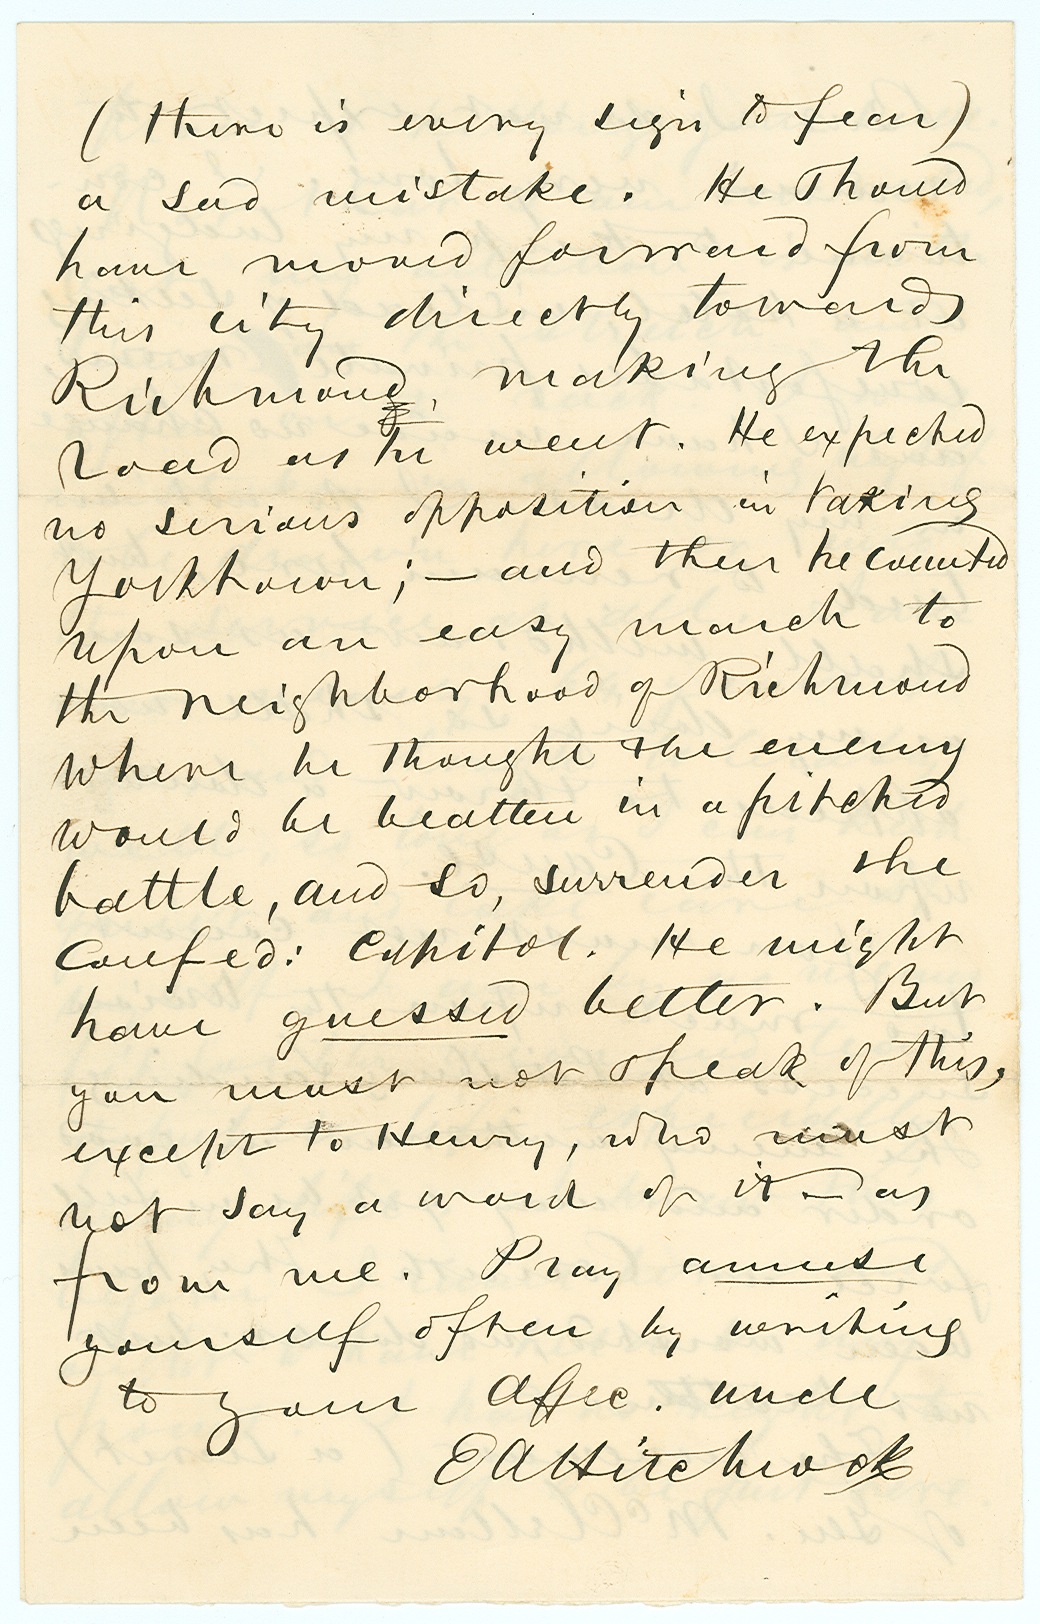 ( there is every sign to fear)
a sad mistake. He should
have moved forward from
this city directly towards
Richmond, making the
road as he went. He expected
no serious opposition in taking
Yorktown; — and then he counted
upon an easy march to
the neighborhood of Richmond
where he thought the enemy
would be beatten in a pitched
battle, and so, surrender the
Confed: Capitol. He might
have guessed better. But
you must not speak of this,
except to Henry, who must
not say a word of it — as
from me. Pray amuse
yourself often by writing
to your Affec. uncle
EAHitchcock